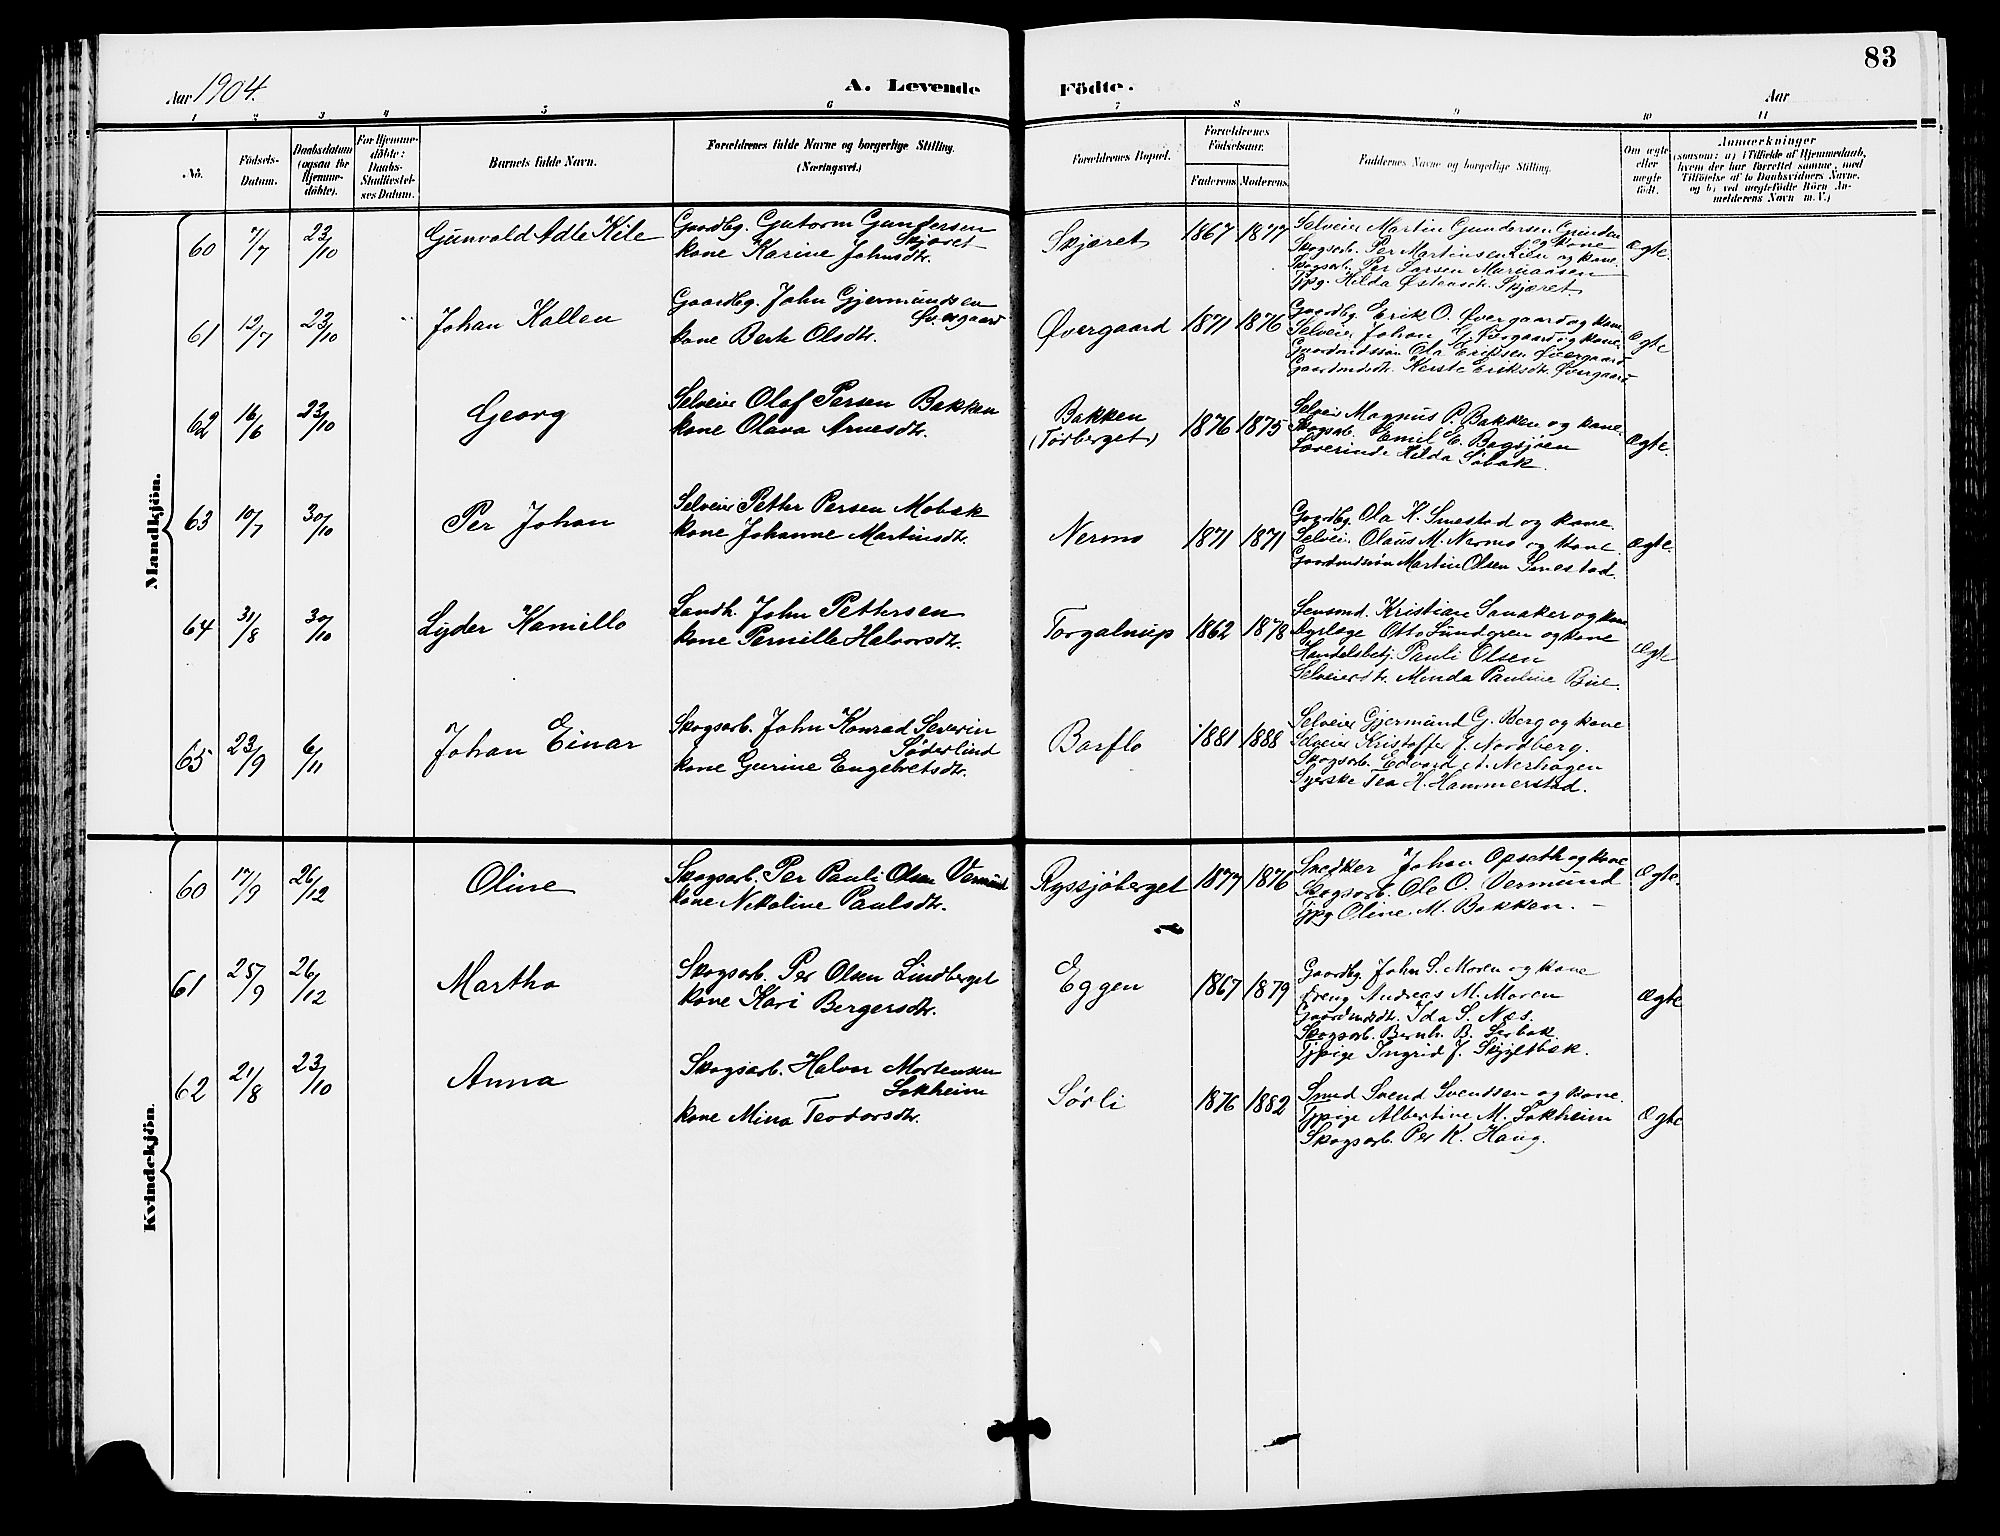 83
Aar 1904.
A. Levende
Födte.
Aar
1 2 3 4 5 6 7 8 9 10 11
No.
Födsels-
Datum.
Daabsdatum
(ogsaa for
Hjemme-
döbte).
For Hjemme-
döbte:
Daabs-
Stadfæstel-
ses Datum.
Barnets fulde Navn.
Forældrenes fulde Navne og borgerlige Stilling.
(Næringsvei.)
Forældrenes Bopæl.
Forældrenes
Födselsaar.
Faderens. Moderens.
Faddernes Navne og borgerlige Stilling.
Om ægte
eller
uægte
født.
Anmærkninger
(saasom: a) i Tilfælde af Hjemmedaab,
hvem der har forrettet samme, med
Tilföielse af to Daabsvidners Navne,
og b) ved uægtefödte Börn An-
melderens Navn m. V.)
Mandkjön.
60 7/7 23/10 Gunvald Adle Kile
Gaardbg. Gutorm Gundersen
Skjæret
kone Karine Johnsdtr.
Skjæret 1867 1877
Selveier Martin Gundersen Grinden
og kone
Skogsarb. Per Martinsen Lien og kone.
Skogsarb. Per Larsen
Tjpg. Hilda Østensdr. Skjæret
ægte.
61 12/7 23/10 Johan Kallen
Gaardbg. John Gjermundsen
Øvergaard
kone Berte Olsdtr.
Øvergaard 1871 1876
Gaardbg. Erik O. Øvergaard og kone
Selveier Johan Øvergaard og kone.
Gaardmdssøn Ola Eriksen Øvergaard
Gaardmdsdtr. Kerste Eriksdtr. Øvergaard
Ægte
62 16/6 23/10 Georg
Selveier Olaf Persen Bakken
kone Olava Arnesdtr.
Bakken
(Tørberget) 1876 1875
Selveier Magnus P. Bakken og kone.
Skogsarb. Emil E. Bagsjøen
Lærerinde Hilda Søbak.
Ægte.
63 10/7 30/10 Per Johan
Selveier Petter Persen Mobæk
kone Johanne Martinsdtr.
Nermo 1871 1871
Gaardbg. Ola H. Smestad og kone.
Selveier Olaus M. Nermo og kone
Gaardmdssøn Martin Olsen Smestad.
Ægte.
64 31/8 30/10 Lyder Kamillo
Landh. John Pettersen
kone Pernille Halvorsdtr.
Torgalnup 1862 1878
Lensmd. Kristian Sanaker og kone
Dyrlæge Otto Lundgren og kone
Handelsbetj. Pauli Olsen
Selveierdtr. Minda Pauline Bue.
Ægte
65 23/9 6/11 Johan Einar
Skogsarb. John Konrad Severin
Söderlind
kone Gurine Engebretsdtr.
Barflo 1881 1888
Selveier Gjermund G. Berg og kone
Selveier Kristoffer J. Nordberg.
Skogsarb. Edvard A. Nerhagen
Syerske Tea H. Hammerstad.
Kvindekjön.
60 17/9 26/12 Oline
Skogsarb. Per Pauli Olsen Vermund
kone Nikoline Paulsdtr.
Ryssjøberget 1877 1876
Snedker Johan Opseth og kone
Skogsarb. Ole O. Vermund
Tjpg Oline M. Bakken. –
Ægte.
61 25/9 26/12 Martha
Skogsarb. Per Olsen Lindberget
kone Kari Bergersdtr.
Eggen 1867 1879
Gaardbg. John S. Moren og kone
Dreng Andreas M. Moren
Gaardmdsdtr. Ida S. Næs.
Skogsarb. Bernh. B. Lerbak.
Tjpige Ingrid J. Skjyltbæk.
Ægte
62 21/8 23/10 Anna
Skogsarb. Halvor Mortensen
Lokheim
kone Mina Teodorsdtr.
Sørli 1876 1882
Smed Svend Svendsen og kone.
Tjpige Albertine M. Lokheim
Skogsarb. Per K. Haug.
Ægte